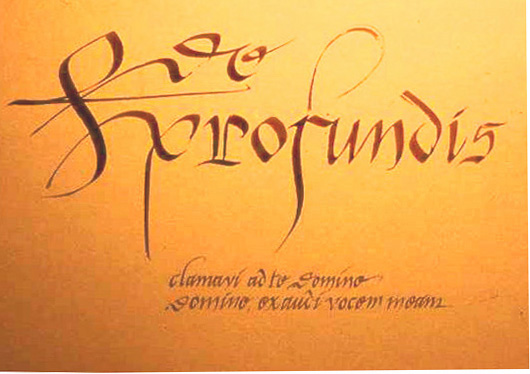 De
profundis
clamavi ad te Domine
Domine, exaudi vocem meam